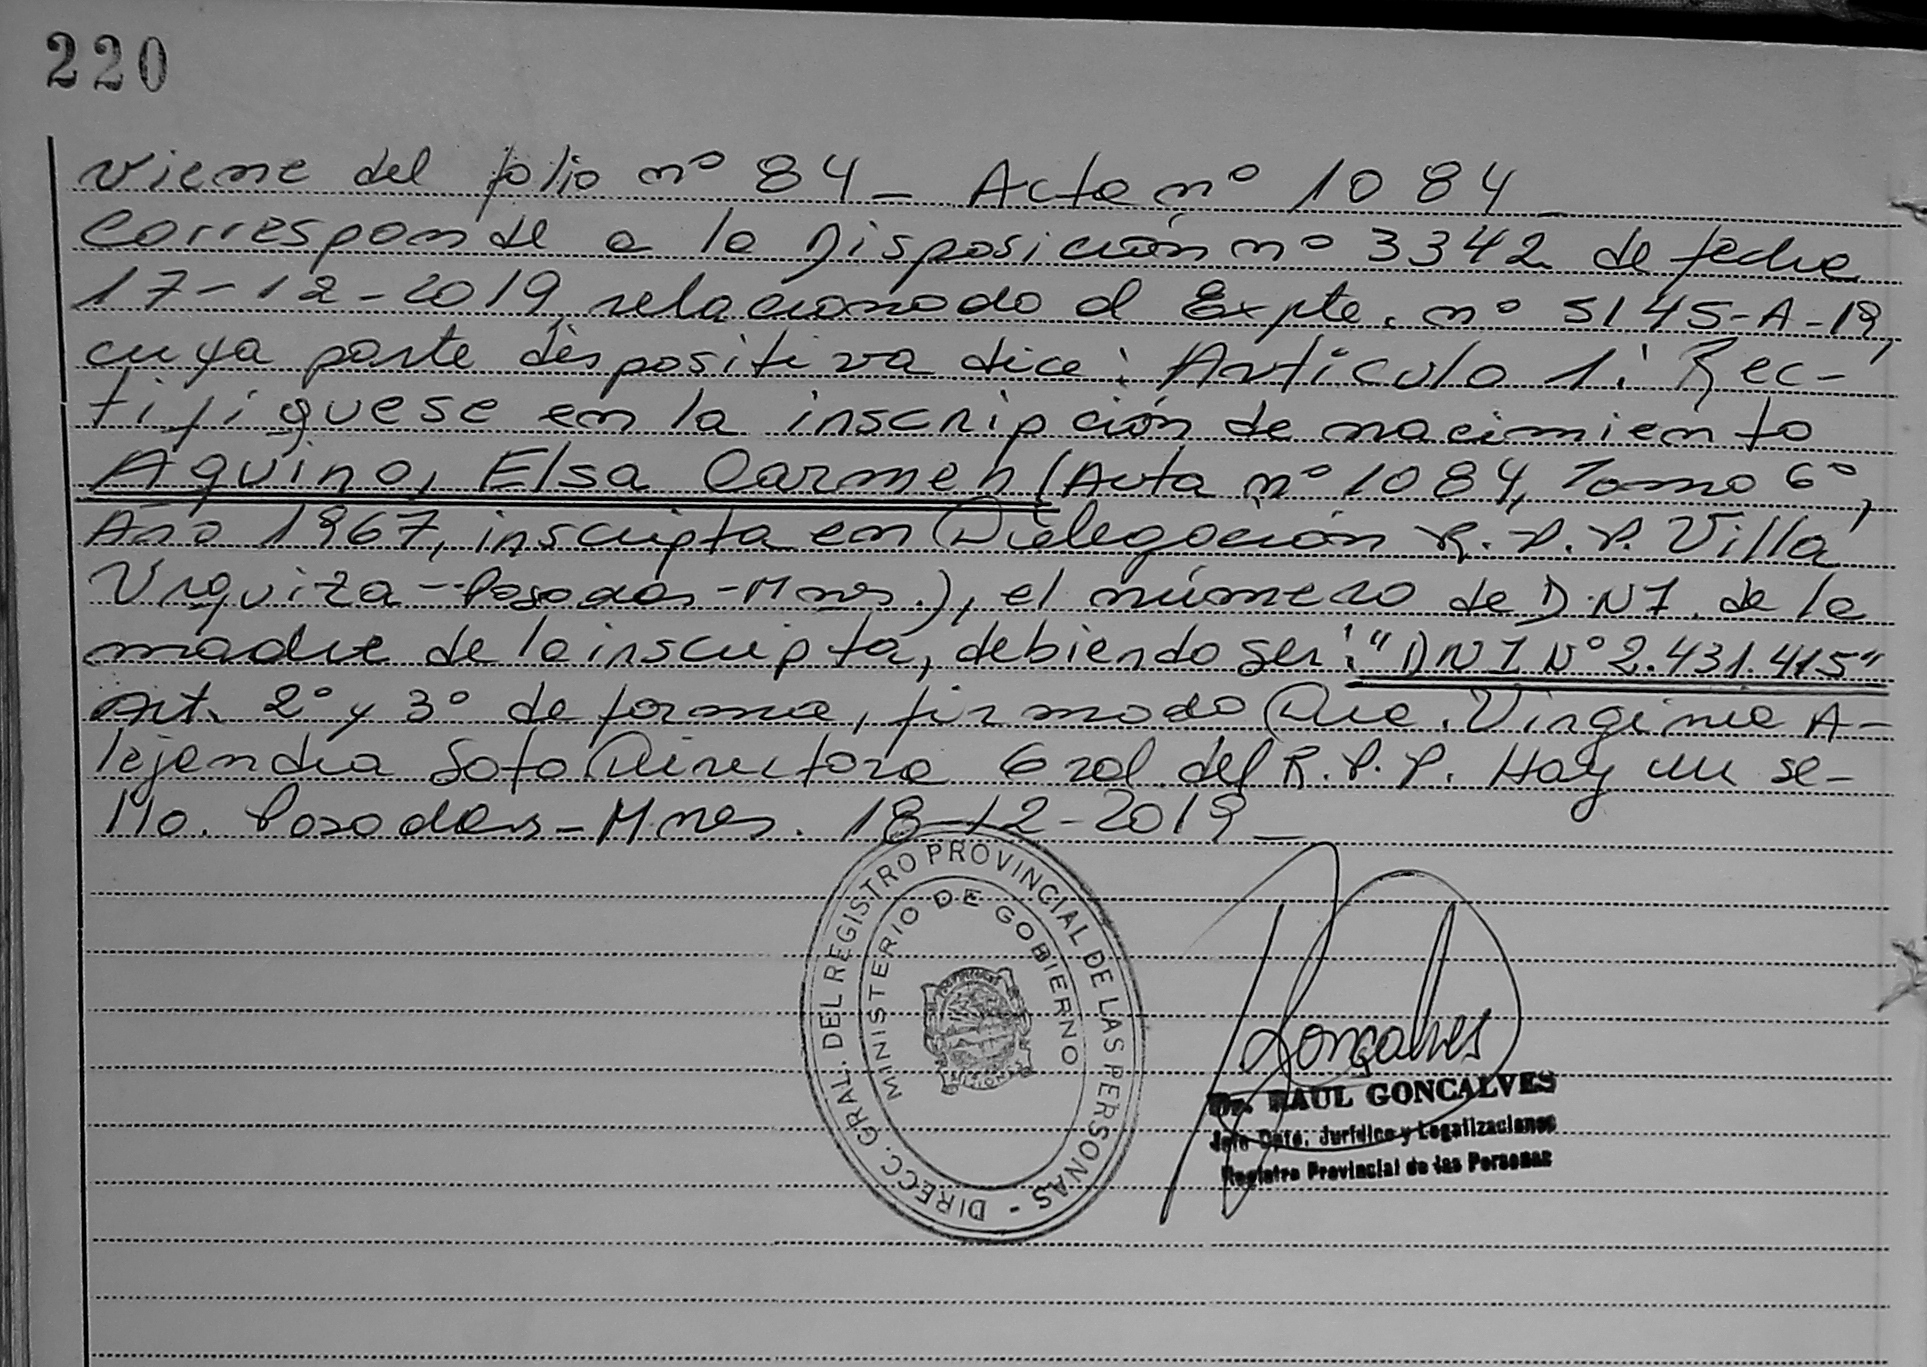 220
Viene del folio nº 84 - Acta nº 1084 -
Corresponde a la Disposición nº 3342 de fecha
17-12-2019, relacionado al Expte. nº 5145-A-19,
cuya parte dispositiva dice: Artículo 1: Rec-
tifíquese en la inscripción de nacimiento
Aquino, Elsa Carmen (Acta nº 1084, Tomo 6º,
Año 1967, inscripta en Delegación R.P.P. Villa
Urquiza - Posadas - Mnes.), el número de D.N.I. de la
madre de la inscripta, debiendo ser: "DNI Nº 2.431.415"
Art. 2º y 3º de forma, firmado Dra. Virginia A-
lejandra Soto Directora Gral. del R.P.P. Hay un se-
llo. Posadas - Mnes. 18-12-2019 -
DIRECC. GRAL. DEL REGISTRO PROVINCIAL DE LAS PERSONAS -
MINISTERIO DE GOBIERNO
MISIONES
Gonçalves
Dr. RAUL GONCALVES
Jefe Dpto. Jurídico y Legalizaciones
Registro Provincial de las Personas